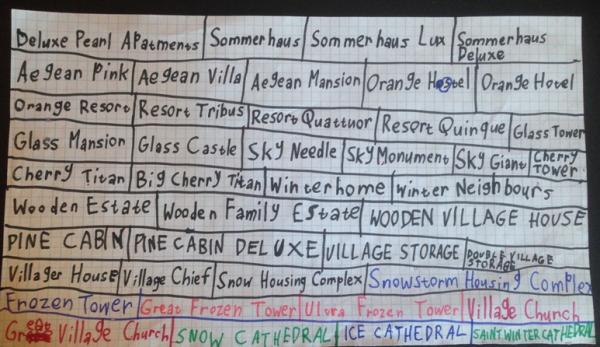 Deluxe Pearl APatments Sommerhaus Sommerhaus Lux Sommerhaus Deluxe
Aegean Pink Aegean Villa Aegean Mansion Orange Hostel Orange Hotel
Orange Resort Resort Tribus Resort Quattuor Resort Quinque Glass Tower
Glass Mansion Glass Castle Sky Needle Sky Monument Sky Giant Cherry TOWER
Cherry Titan Big Cherry Titan Winterhome Winter Neighbours
Wooden Estate Wooden Family Estate WOODEN VILLAGE HOUSE
PINE CABIN PINE CABIN DELUXE VILLAGE STORAGE DOUBLE VILLAGE STORAGE
Villager House Village Chief Snow Housing Complex Snowstorm Housing Complex
Frozen Tower Great Frozen Tower Ultra Frozen Tower Village Church
Great Village Church SNOW CATHEDRAL ICE CATHEDRAL SAINT WINTER CATHEDRAL